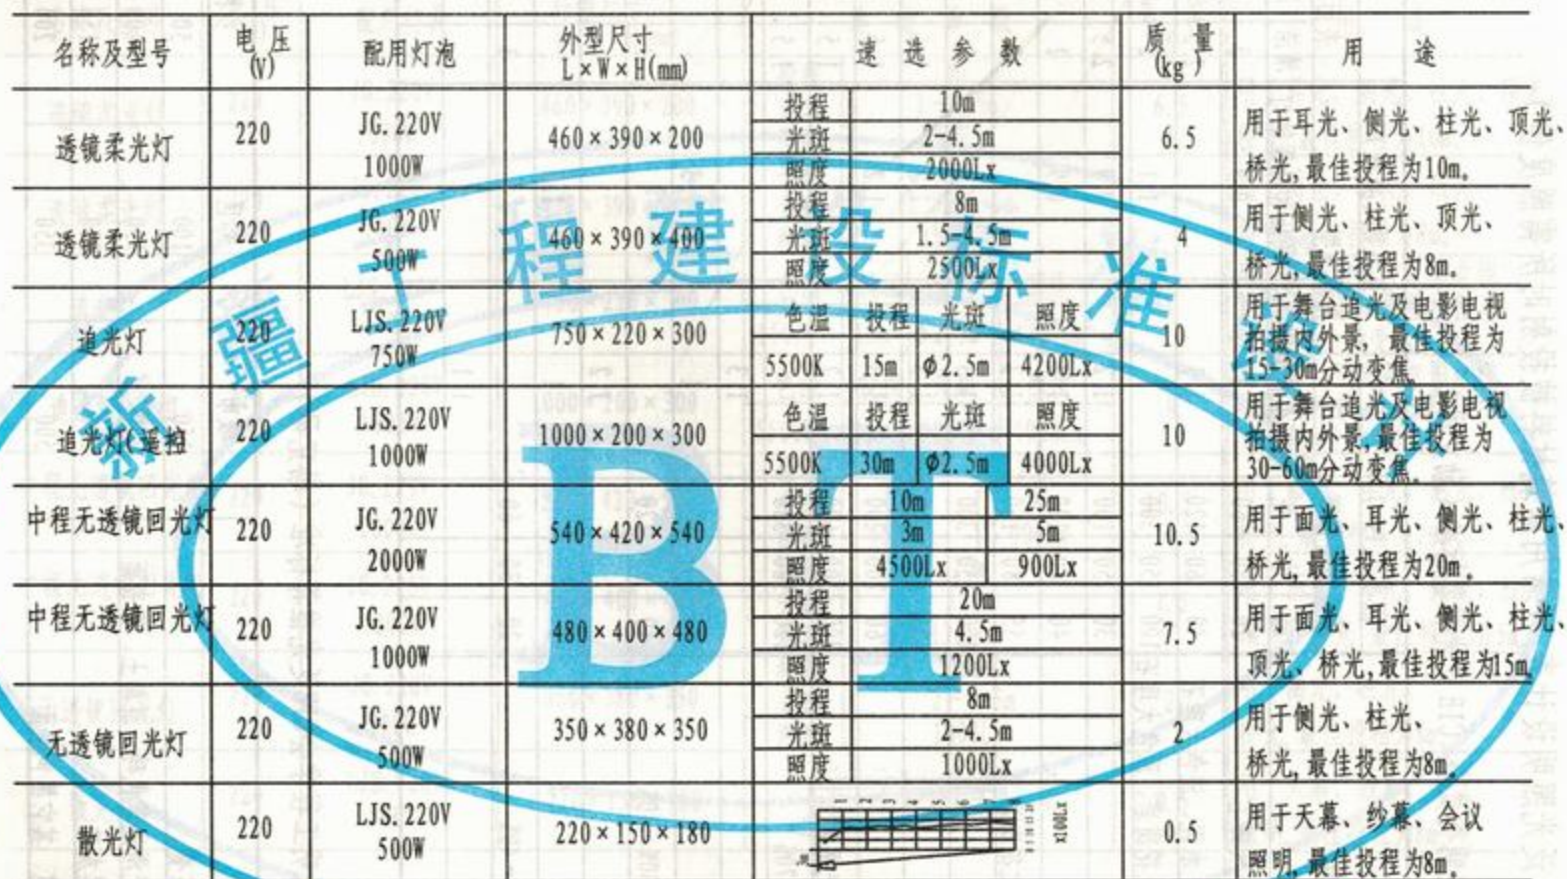 名称及型号 电压(V) 配用灯泡 外型尺寸 L×W×H(mm) 速选参数 质量(kg) 用途
透镜柔光灯 220 JG.220V 1000W 460×390×200 6.5
投程 10m
光斑 2-4.5m
照度 2000Lx
用于耳光、侧光、柱光、顶光、
桥光,最佳投程为10m。
透镜柔光灯 220 JG.220V 500W 460×390×400 4
投程 8m
光斑 1.5-4.5m
照度 2500Lx
用于侧光、柱光、顶光、
桥光,最佳投程为8m。
追光灯 220 LJS.220V 750W 750×220×300 10
色温 投程 光斑 照度
5500K 15m φ2.5m 4200Lx
用于舞台追光及电影电视
拍摄内外景, 最佳投程为
15-30m分动变焦。
追光灯(遥控 220 LJS.220V 1000W 1000×200×300 10
色温 投程 光斑 照度
5500K 30m φ2.5m 4000Lx
用于舞台追光及电影电视
拍摄内外景,最佳投程为
30-60m分动变焦。
中程无透镜回光灯 220 JG.220V 2000W 540×420×540 10.5
投程 10m 25m
光斑 3m 5m
照度 4500Lx 900Lx
用于面光、耳光、侧光、柱光、
桥光,最佳投程为20m。
中程无透镜回光灯 220 JG.220V 1000W 480×400×480 7.5
投程 20m
光斑 4.5m
照度 1200Lx
用于面光、耳光、侧光、柱光、
顶光、桥光,最佳投程为15m
无透镜回光灯 220 JG.220V 500W 350×380×350 2
投程 8m
光斑 2-4.5m
照度 1000Lx
用于侧光、柱光、
桥光,最佳投程为8m。
散光灯 220 LJS.220V 500W 220×150×180 0.5
x100Lx
用于天幕、纱幕、会议
照明,最佳投程为8m。
新疆工程建设标准
BT